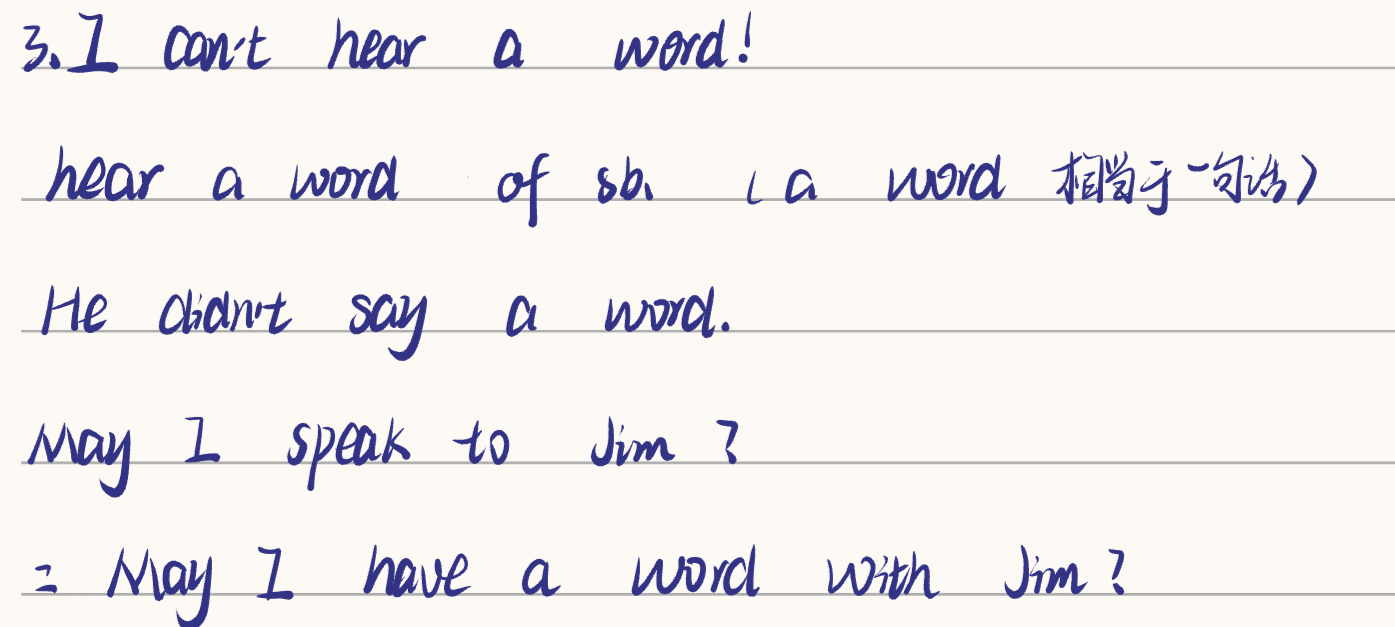 3. I can't hear a word!
hear a word of sb. (a word 相当于一句话)
He didn't say a word.
May I speak to Jim?
= May I have a word with Jim?